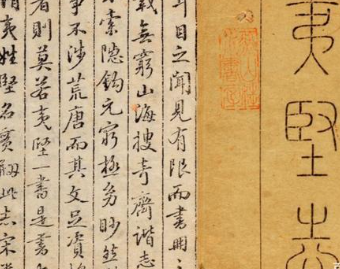 夷堅志
耳目之聞見有限而書冊之
載無窮山海搜奇齊諧志
索隱鈎元窮極幼眇然
事不涉荒唐而其文足資
者則莫若夷堅一書是書
夷姓堅名實 此志宋